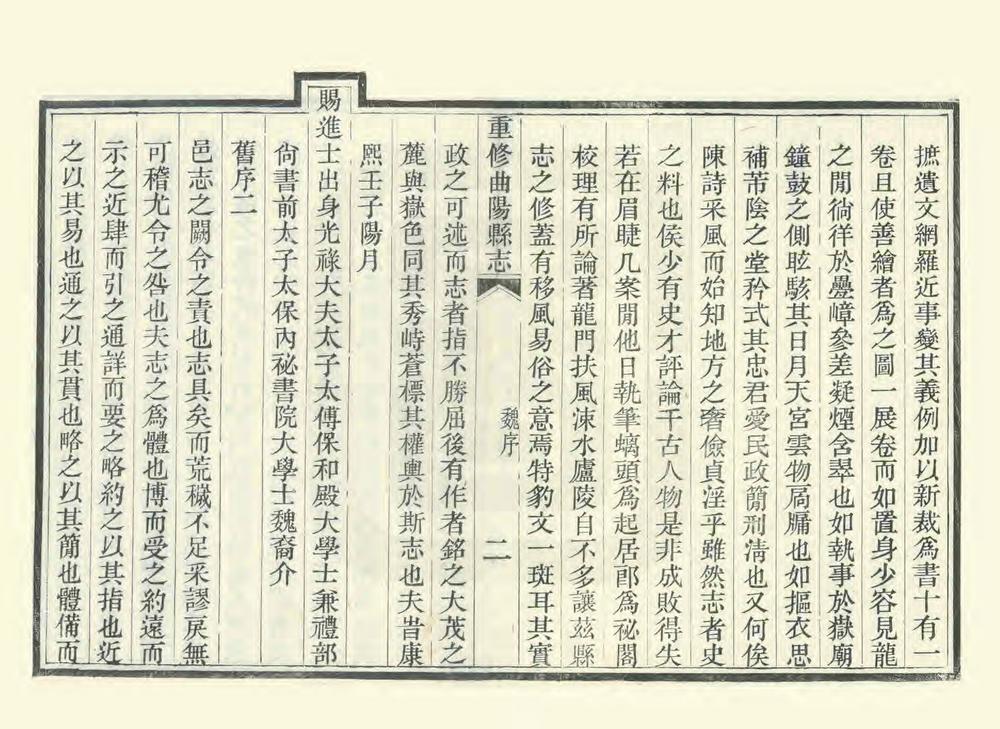 摭遺文網羅近事變其義例加以新裁為書十有一
卷且使善繪者為之圖一展卷而如置身少容見龍
之閒徜徉於疊嶂參差凝煙含翠也如執事於嶽廟
鐘鼓之側眩駭其日月天宮雲物扄牖也如摳衣思
補芾陰之堂矜式其忠君愛民政簡刑淸也又何俟
陳詩采風而始知地方之奢儉貞淫乎雖然志者史
之料也侯少有史才評論千古人物是非成敗得失
若在眉睫几案閒他日執筆螭頭為起居郎為祕閣
校理有所論著龍門扶風涑水廬陵自不多讓茲縣
志之修蓋有移風易俗之意焉特豹文一斑耳其實
重修曲陽縣志
魏序
二
政之可述而志者指不勝屈後有作者銘之大茂之
麓與嶽色同其秀峙蒼標其權輿於斯志也夫旹康
熙壬子陽月
賜進士出身光祿大夫太子太傅保和殿大學士兼禮部
尙書前太子太保內祕書院大學士魏裔介
舊序二
邑志之闕令之責也志具矣而荒穢不足采謬戾無
可稽尤令之咎也夫志之為體也博而受之約遠而
示之近肆而引之通詳而要之略約之以其指也近
之以其易也通之以其貫也略之以其簡也體備而